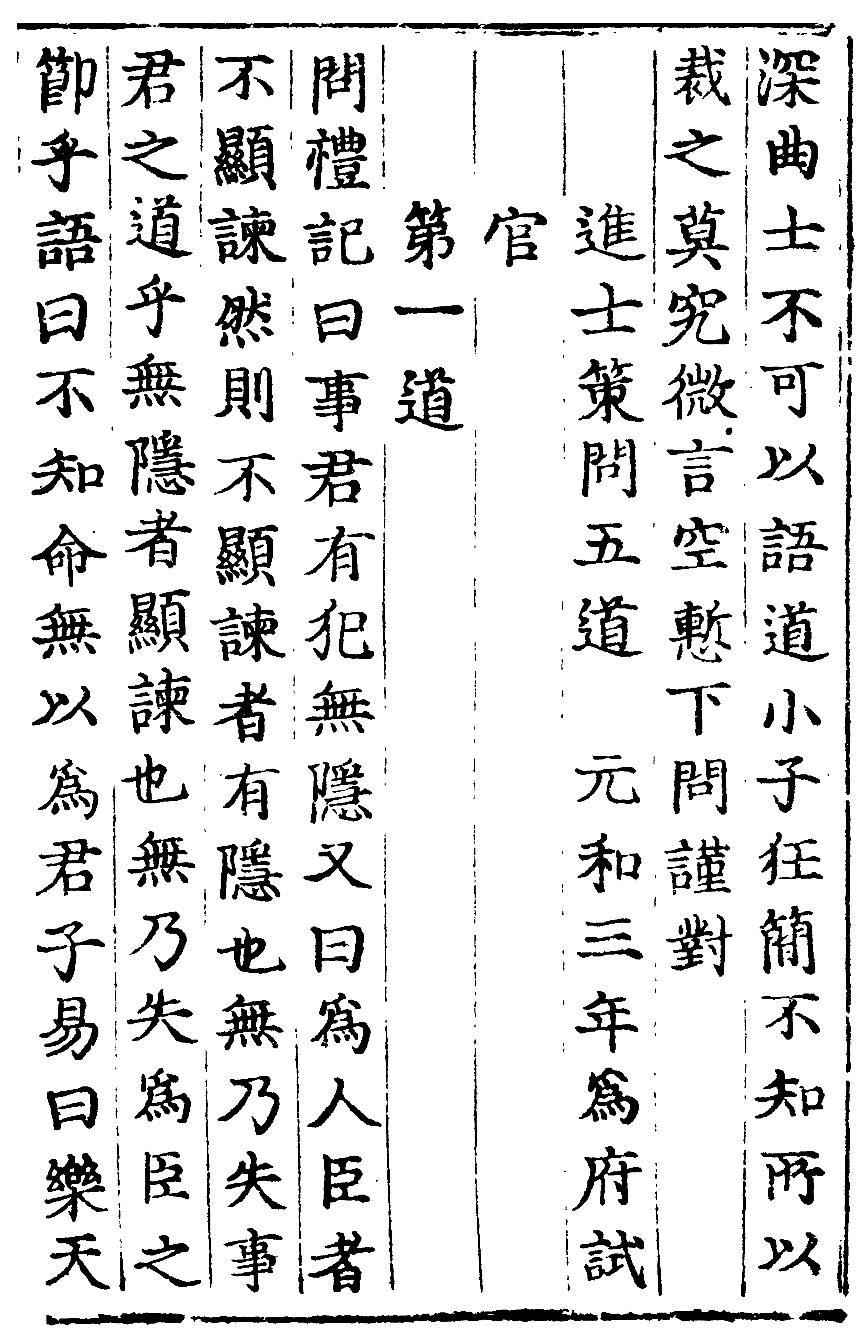 深曲士不可以語道小子狂簡不知所以
裁之莫究微言空慙下問謹對
進士策問五道　元和三年爲府試
官
第一道
問禮記曰事君有犯無隱又曰爲人臣者
不顯諫然則不顯諫者有隱也無乃失事
君之道乎無隱者顯諫也無乃失爲臣之
節乎語曰不知命無以爲君子易曰樂天